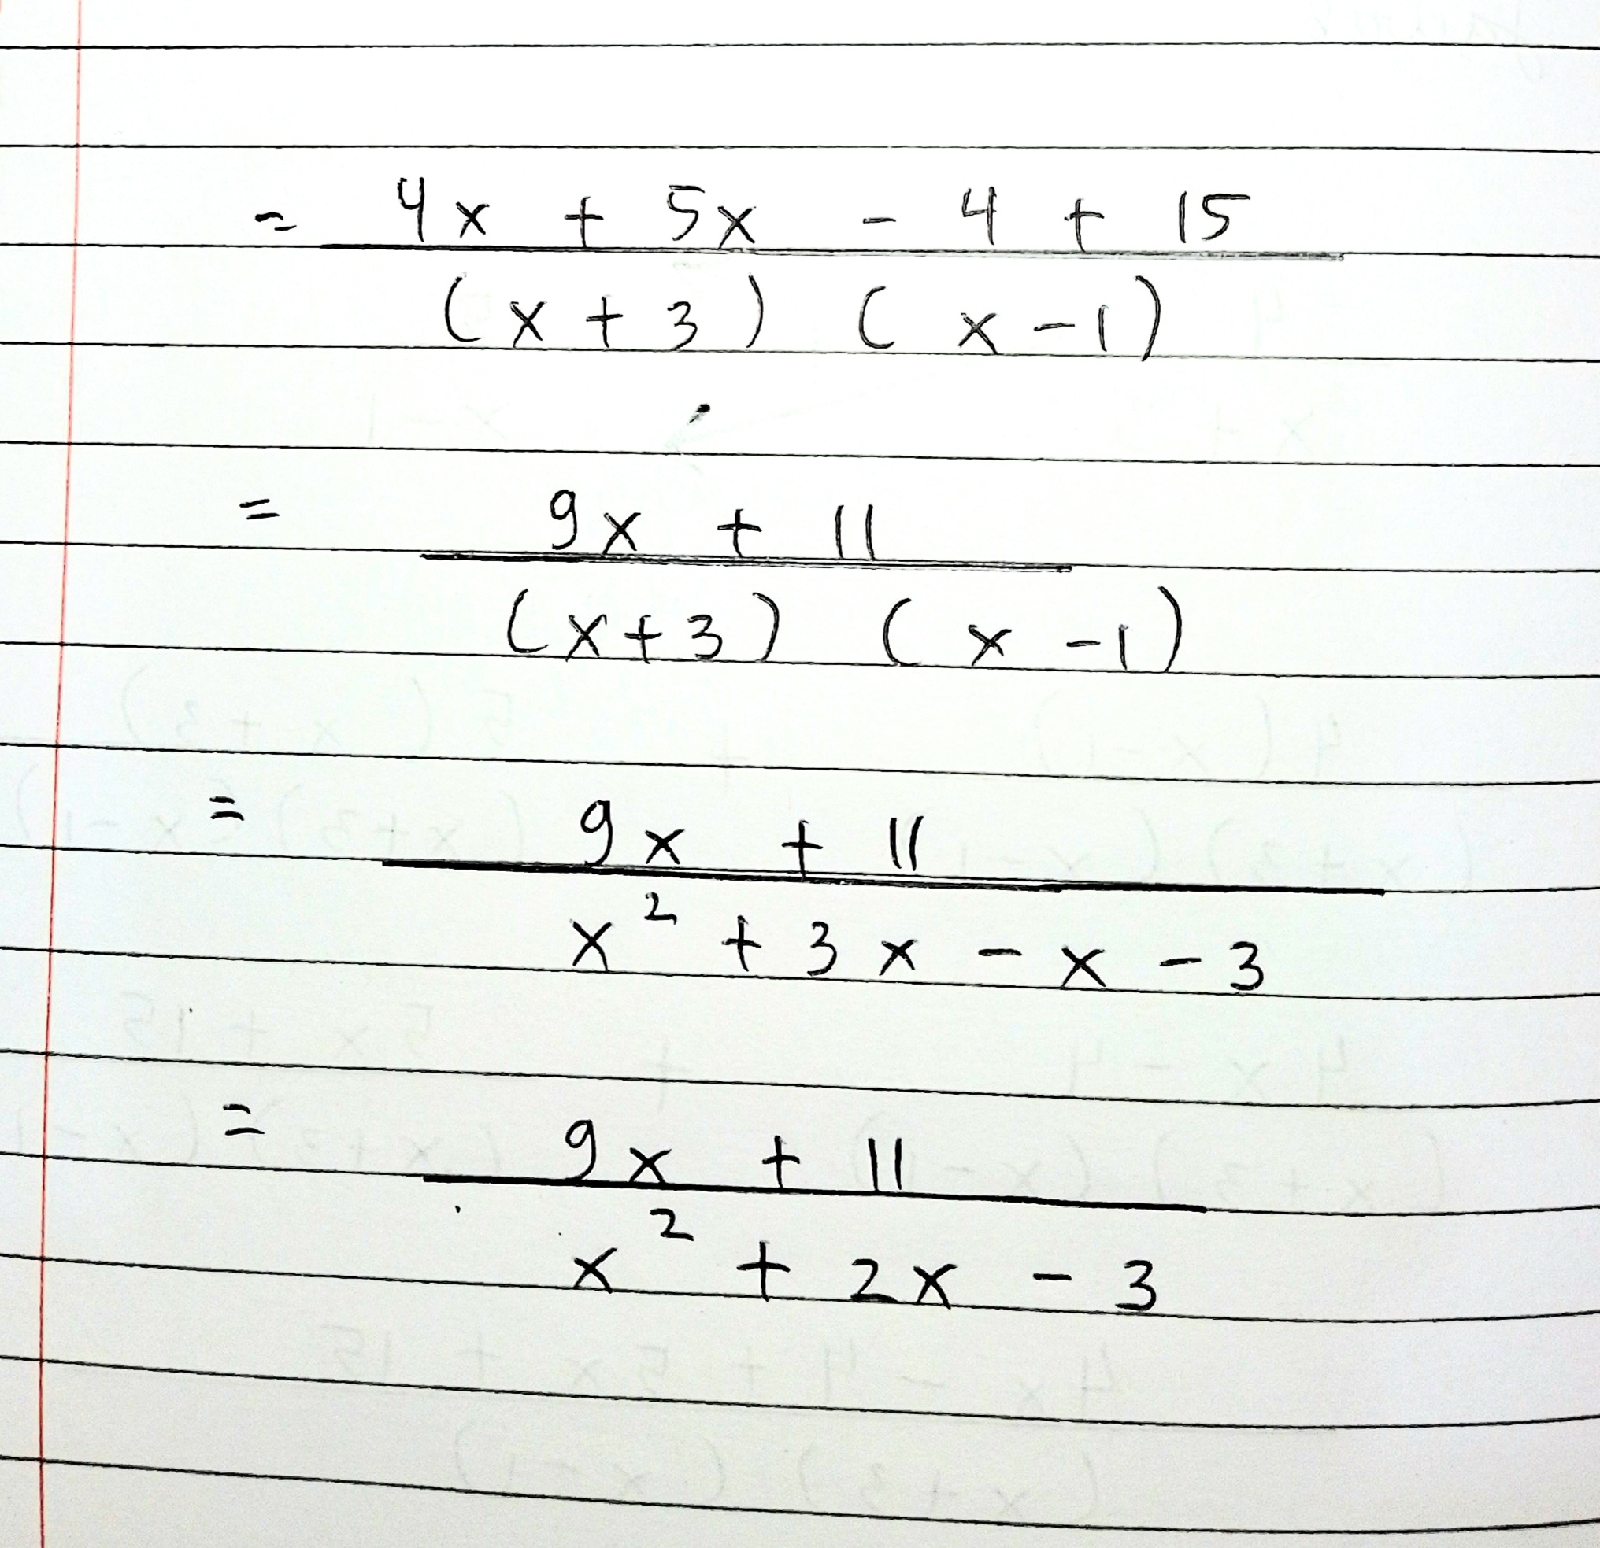 = 4x + 5x - 4 + 15
(x + 3) (x - 1)
= 9x + 11
(x+3) (x - 1)
= 9x + 11
x² + 3x - x - 3
= 9x + 11
x² + 2x - 3